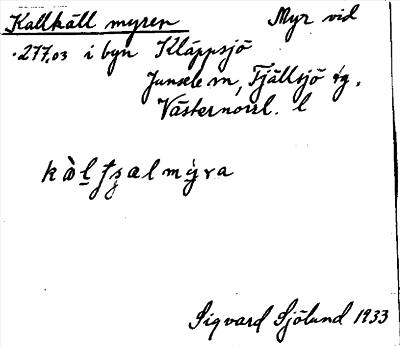 Kallkäll myren Myr vid
277.03 i byn Kläppsjö
Junsele sn, Fjällsjö tg.
Västernorrl. l
Sigvard Sjölund 1933